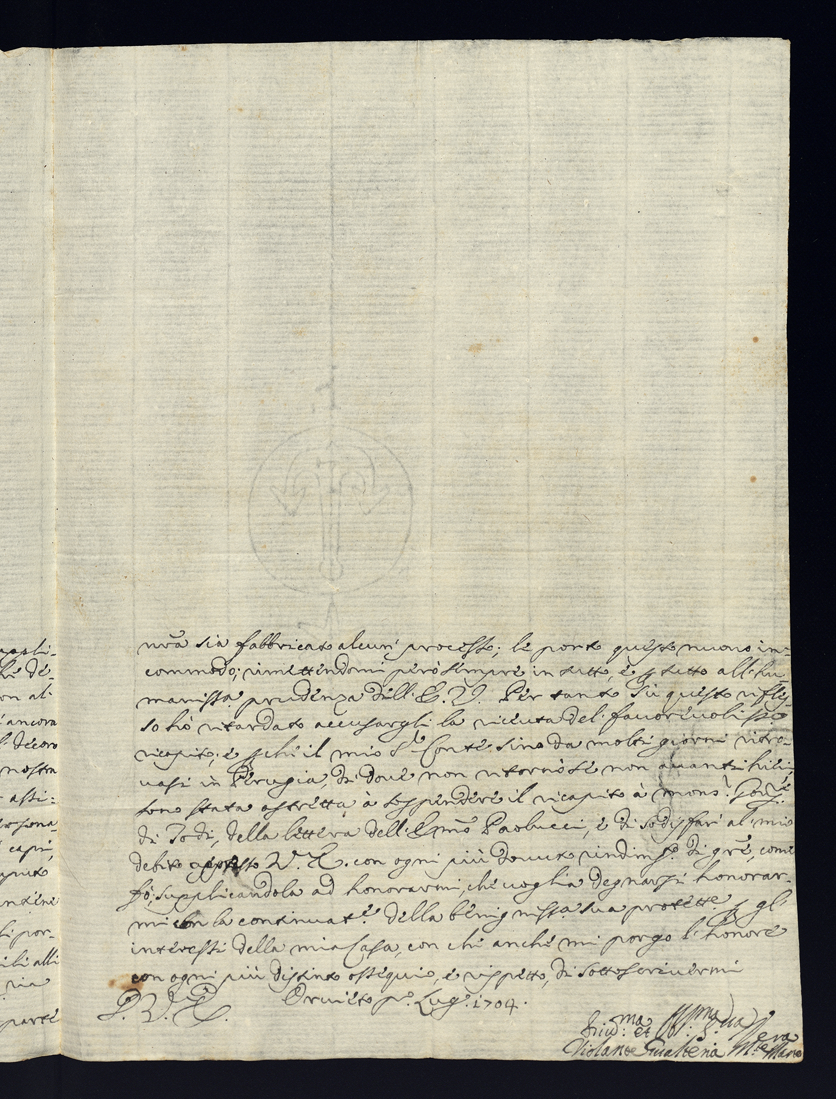 nrã sia fabbricato alcun processo; le porto questo nuovo in-
commodo; rimettendomi però sempre in tutto, e p tutto all'hu-
manissa prudenza dell'E. V. Per tanto sù questo rifles-
so hò ritardato accusargli la ricevuta del favorevolissmo
ricapito; e pchè il mio Sr Conte sino da molti giorni ritro-
vasi in Perugia, di dove non ritornò se non avanti hieri,
sono stata astretta à sospendere il ricapito à Monsr
di Todi, della lettera dell'Emo Paolucci, e di sodisfare al mio
debito appresso V. E. con ogni più dovuto rendimto di gre, come
fò, supplicandola ad honorarmi, che voglia degnarsi honorar-
mi con la continuate della benignissa sua protetne p gl'
interessi della mia Casa, con che anche mi porgo l'honore
con ogni più distinto ossequio, e rispetto, di sottoscrivermi
D. V. E. Orvieto po Lugo 1704.
Divma et
Violante Gualteria